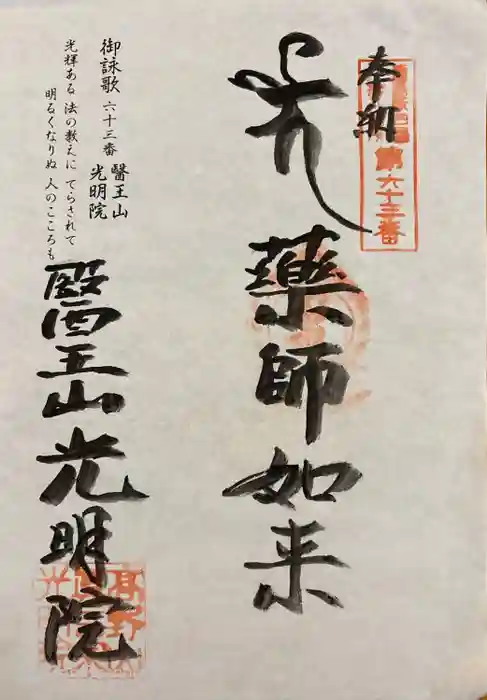 奉納
第六十三番
薬師如来
御詠歌 六十三番 醫王山
光明院
光輝ある 法の教えに てらされて
明るくなりぬ 人のこころも
醫王山光明院